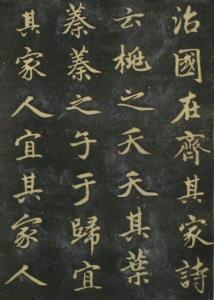 治國在齊其家詩
云桃之夭夭其葉
蓁蓁之子于歸宜
其家人宜其家人